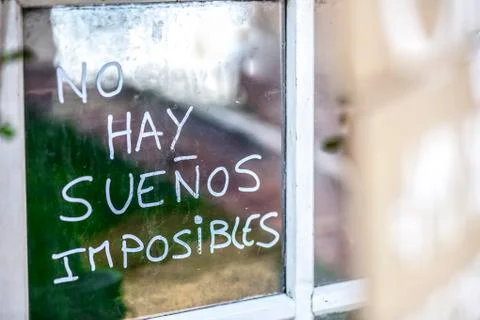 NO
HAY
SUEÑOS
IMPOSIBLES